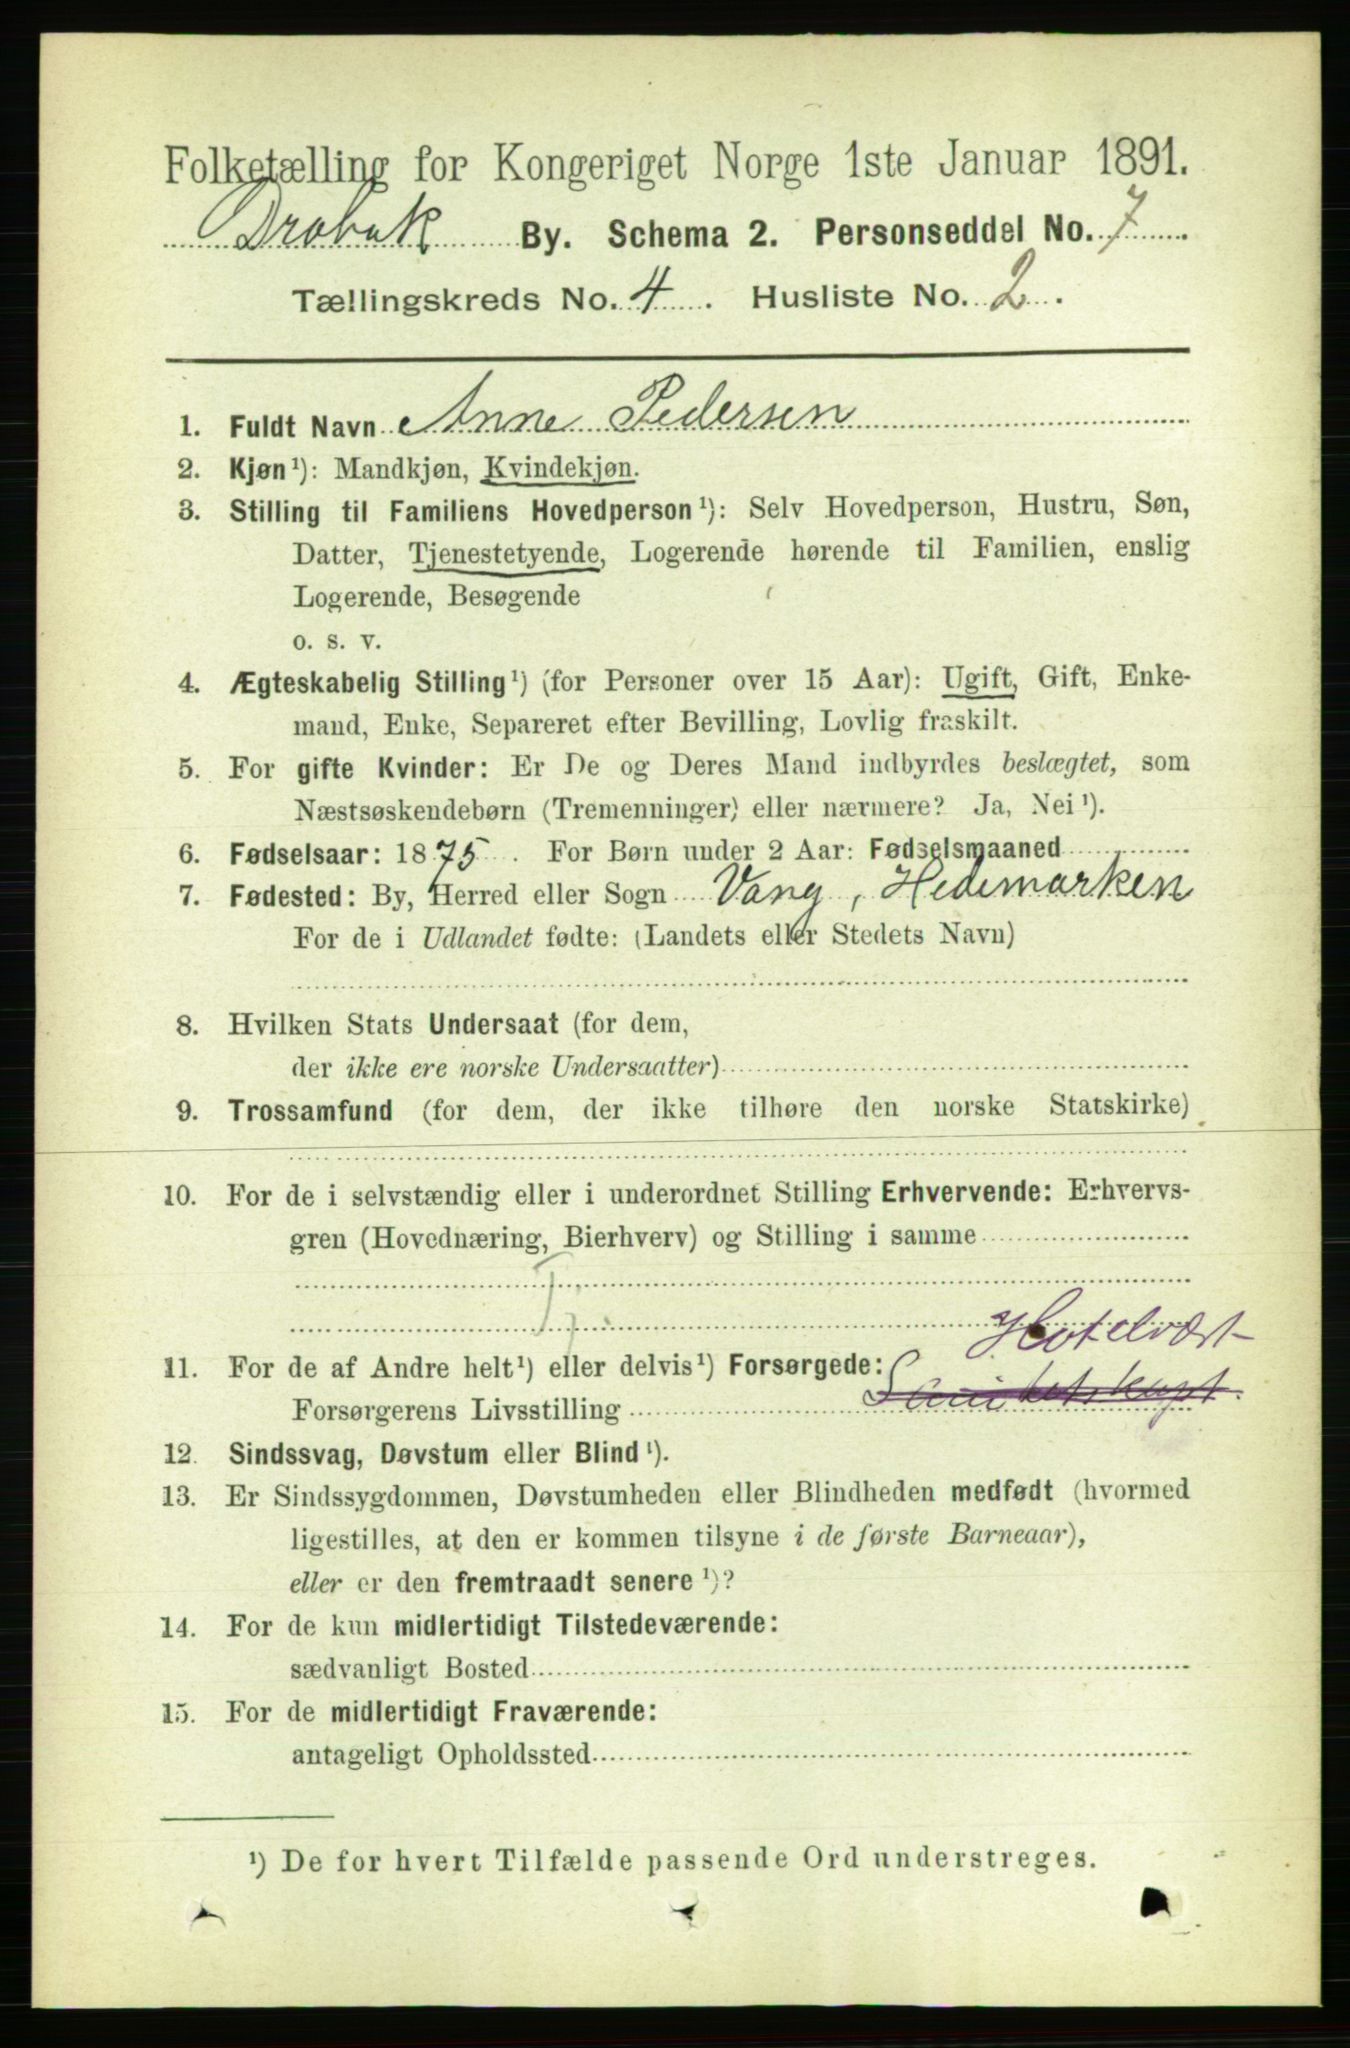 Folketælling for Kongeriget Norge 1ste Januar 1891.
Drøbak By. Schema 2. Personseddel No. 7
Tællingskreds No. 4. Husliste No. 2.
1. Fuldt Navn Anne Pedersen
2. Kjøn¹): Mandkjøn, Kvindekjøn.
3. Stilling til Familiens Hovedperson¹): Selv Hovedperson, Hustru, Søn,
Datter, Tjenestetyende, Logerende hørende til Familien, enslig
Logerende, Besøgende
o. s. v.
4. Ægteskabelig Stilling¹) (for Personer over 15 Aar): Ugift, Gift, Enke-
mand, Enke, Separeret efter Bevilling, Lovlig fraskilt.
5. For gifte Kvinder: Er De og Deres Mand indbyrdes beslægtet, som
Næstsøskendebørn (Tremenninger) eller nærmere? Ja, Nei¹).
6. Fødselsaar: 1875. For Børn under 2 Aar: Fødselsmaaned
7. Fødested: By, Herred eller Sogn Vang, Hedemarken
For de i Udlandet fødte: (Landets eller Stedets Navn)
8. Hvilken Stats Undersaat (for dem,
der ikke ere norske Undersaatter)
9. Trossamfund (for dem, der ikke tilhøre den norske Statskirke)
10. For de i selvstændig eller i underordnet Stilling Erhvervende: Erhvervs-
gren (Hovednæring, Bierhverv) og Stilling i samme
Hotelvært
11. For de af Andre helt¹) eller delvis¹) Forsørgede:
Forsørgerens Livsstilling
12. Sindssvag, Døvstum eller Blind¹).
13. Er Sindssygdommen, Døvstumheden eller Blindheden medfødt (hvormed
ligestilles, at den er kommen tilsyne i de første Barneaar),
eller er den fremtraadt senere¹)?
14. For de kun midlertidigt Tilstedeværende:
sædvanligt Bosted
15. For de midlertidigt Fraværende:
antageligt Opholdssted
¹) De for hvert Tilfælde passende Ord understreges.